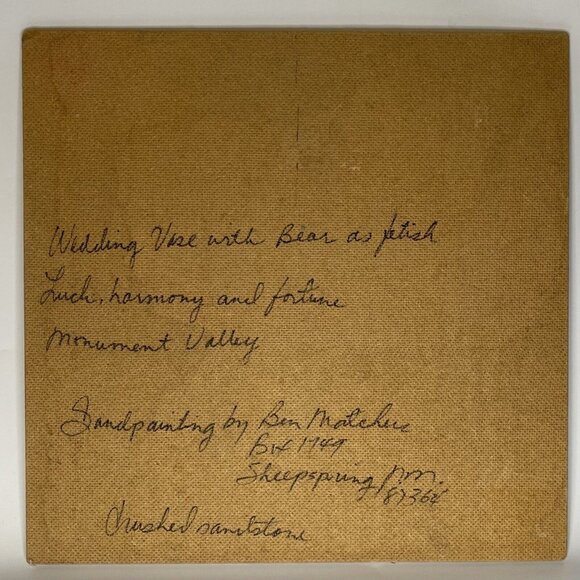 Wedding Vase with Bear as fetish
Luck, harmony and fortune
Monument Valley
Sandpainting by Ben
Box 1749
Sheepspring N.M.
87364
Crushed sandstone